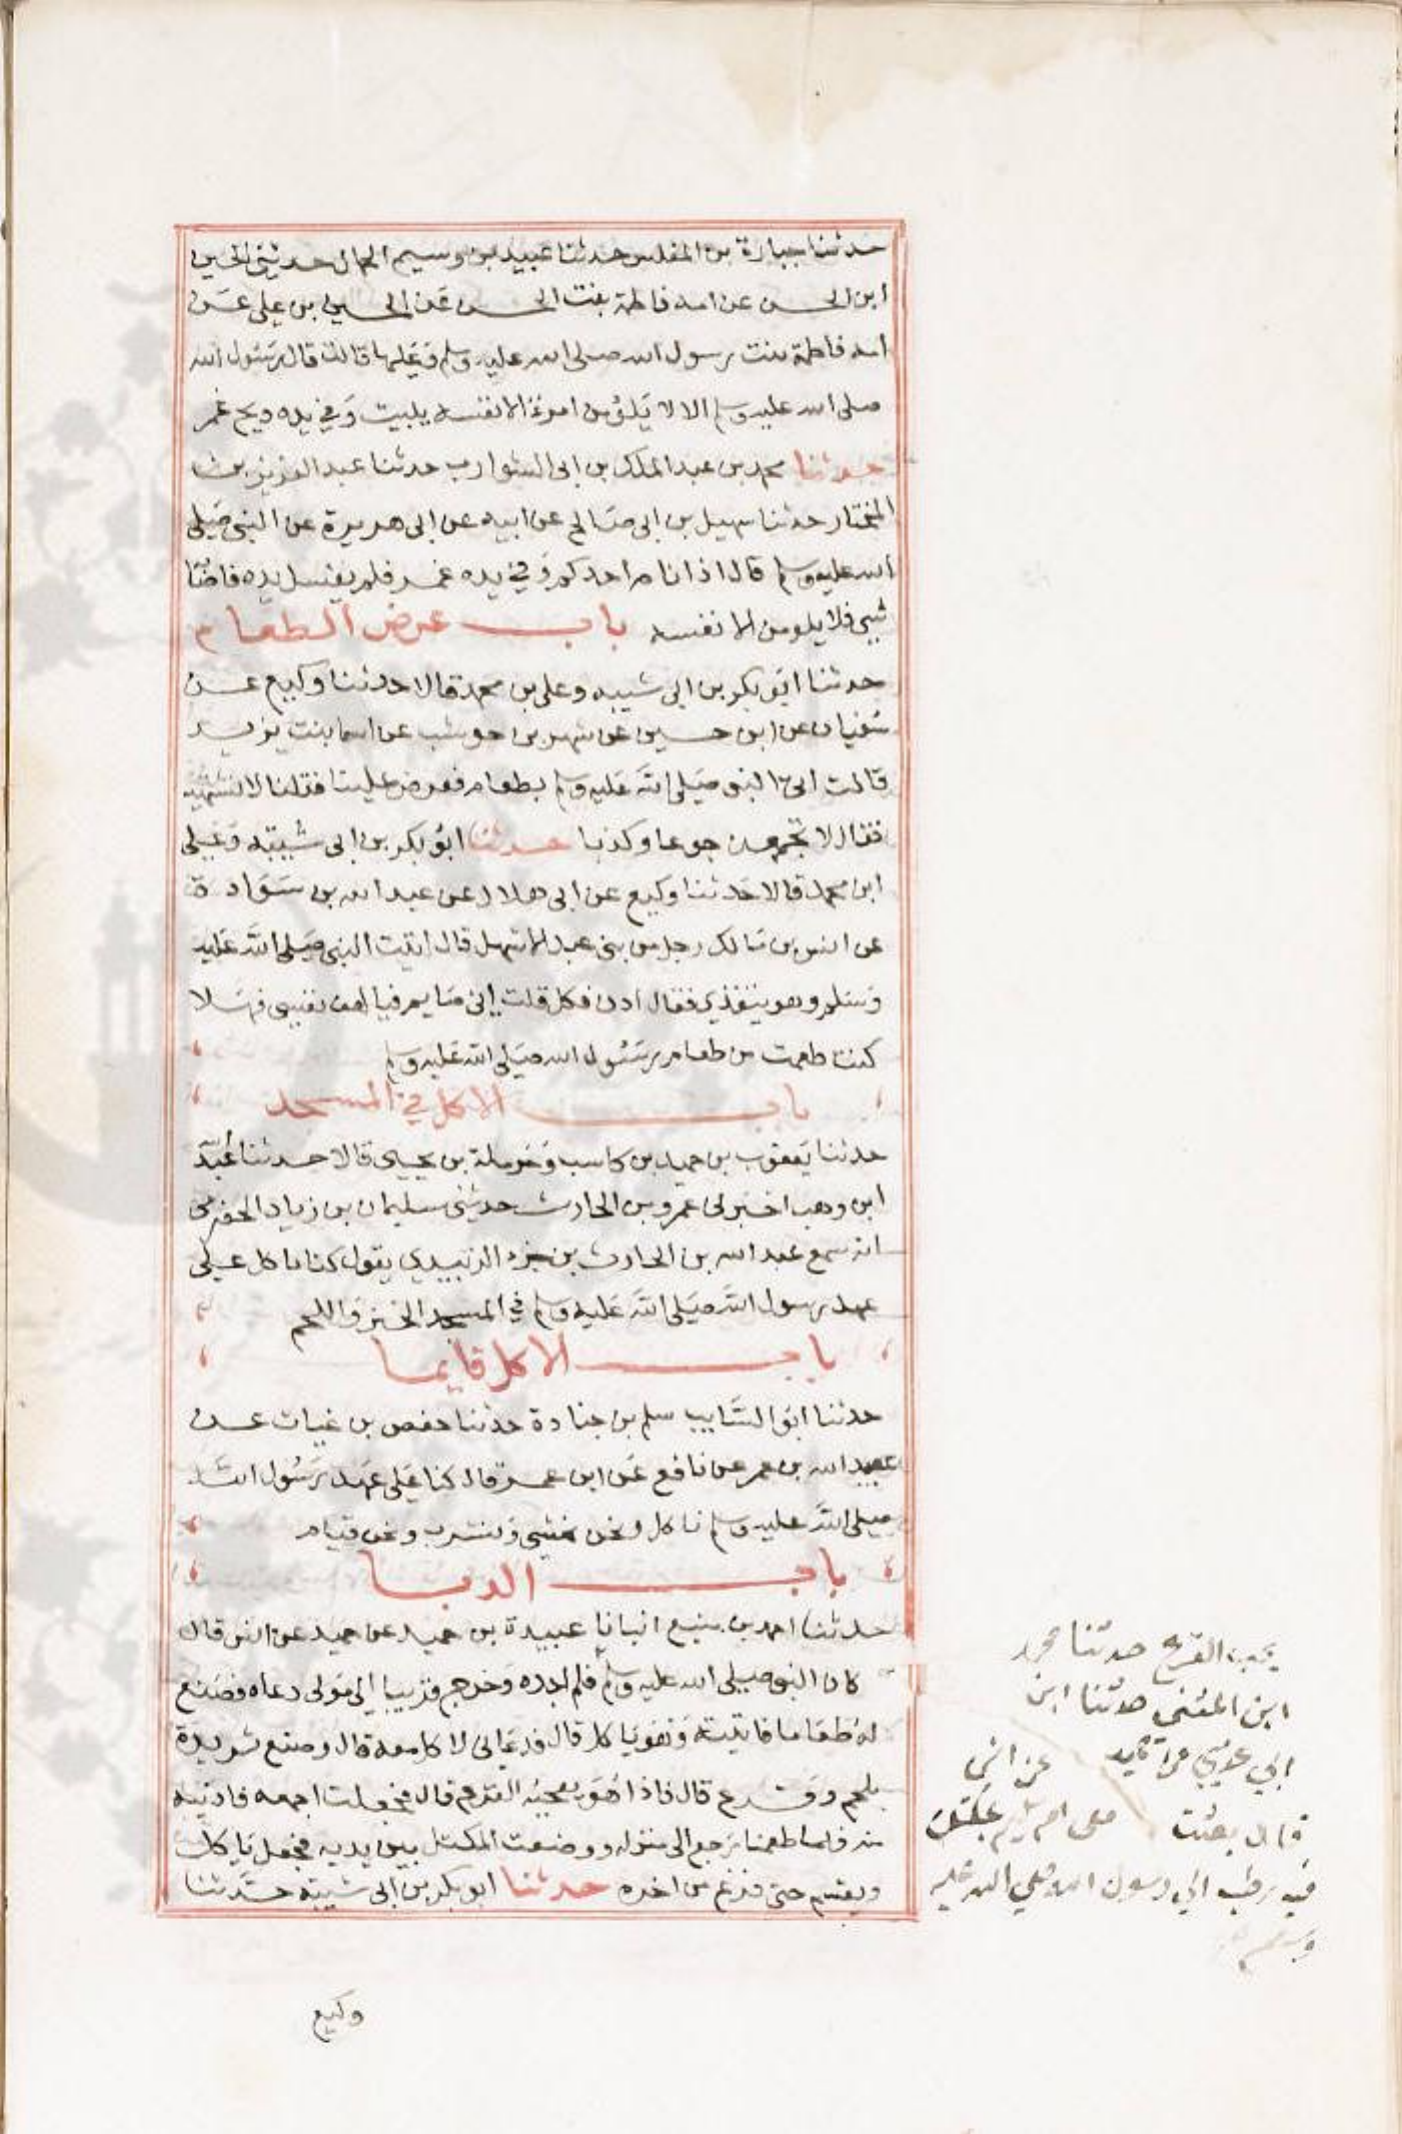 حدثنا جبارة بن المغلس حدثنا عبيد بن وسيم الجمال حدثني الحسين
ابن الحسن عن امه فاطمة بنت الحسين عن الحسين بن علي عن
امه فاطمة بنت رسول الله صلى الله عليه وسلم وعليها قالت قال رسول الله
صلى الله عليه وسلم الا لا يلومن امرؤ الا نفسه يبيت وفي يده ريح غمر
حدثنا محمد بن عبد الملك بن ابى الشوارب حدثنا عبد العزيز بن
المختار حدثنا سهيل بن ابى صالح عن ابيه عن ابى هريرة عن النبي صلى
الله عليه وسلم قال اذا نام احدكم وفي يده غمر فلم يغسل يده فاصابه
شيى فلا يلومن الا نفسه باب عرض الطعام
حدثنا ابو بكر بن ابى شيبه وعلى بن محمد قالا حدثنا وكيع عن
سفيان عن ابن حسين عن شهر بن حوشب عن اسما بنت يزيد
قالت اتى النبى صلى الله عليه وسلم بطعام فعرض علينا فقلنا لا نشتهيه
فقال لا تجمعن جوعا وكذبا حدثنا ابو بكر بن ابى شيبة وعلى
ابن محمد قالا حدثنا وكيع عن ابى هلال عن عبد الله بن سوادة
عن انس بن مالك رجل من بنى عبد الاشهل قال اتيت النبى صلى الله عليه
وسلم وهو يتغذى فقال ادن فكل قلت انى صايم فيا لهف نفسى فهلا
كنت طعمت من طعام رسول الله صلى الله عليه وسلم
باب الاكل في المسجد
حدثنا يعقوب بن حميد بن كاسب وحرملة بن يحيى قالا حدثنا عبد الله
ابن وهب اخبرنى عمرو بن الحارث حدثنى سليمان بن زياد الحضرمى
انه سمع عبد الله بن الحارث بن جزء الزبيدي يقول كنا ناكل على
عهد رسول الله صلى الله عليه وسلم في المسجد الخبز واللحم
باب الاكل قايما
حدثنا ابو السايب سلم بن جنادة حدثنا حفص بن غياث عن
عبيد الله بن عمر عن نافع عن ابن عمر قال كنا على عهد رسول الله
صلى الله عليه وسلم ناكل ونحن نمشى ونشرب ونحن قيام
باب الدبا
حدثنا احمد بن منيع انبانا عبيدة بن حميد عن حميد عن انس قال
كان النبى صلى الله عليه وسلم فلم اجده وخرج قريبا الى مولى دعاه فصنع
له طعاما فاتيته وهو ياكل قال فدعانى لاكل معه قال وصنع ثريدة
بلحم وقرع قال فاذا هو يعجبه القرع قال فجعلت اجمعه فادنيه
منه فلما طعمنا رجع الى منزله ووضعت المكتل بين يديه فجعل ياكل
ويقسم حتى فرغ من اخره حدثنا ابو بكر بن ابى شيبة حدثنا
وكيع
يحب القرع حدثنا محمد
ابن المثنى حدثنا ابن
ابي عدي عن حميد عن انس
قال بعثت معى ام سليم بمكتل
فيه رطب الي رسول الله صلي الله عليه
وسلم